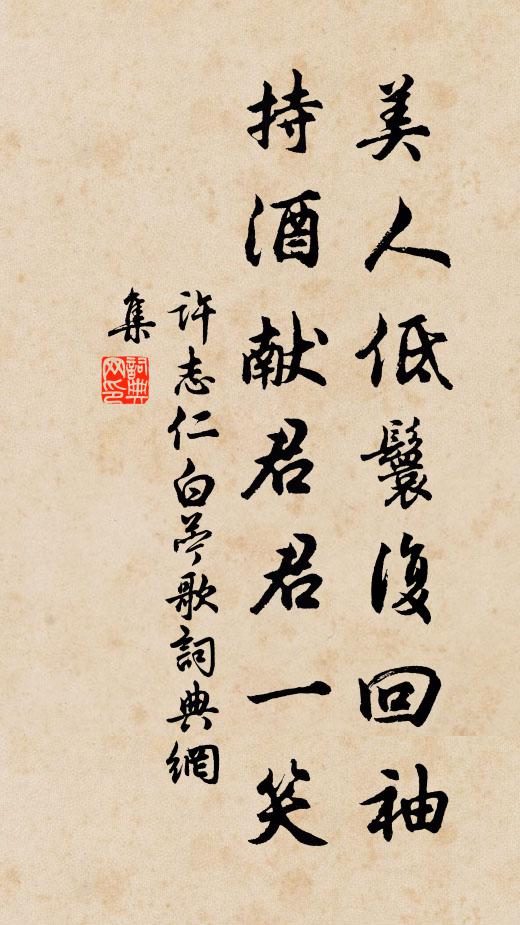 美人低鬟復回袖
持酒献君君一笑
許志仁白苧歌詞典網
集
詞典
网印